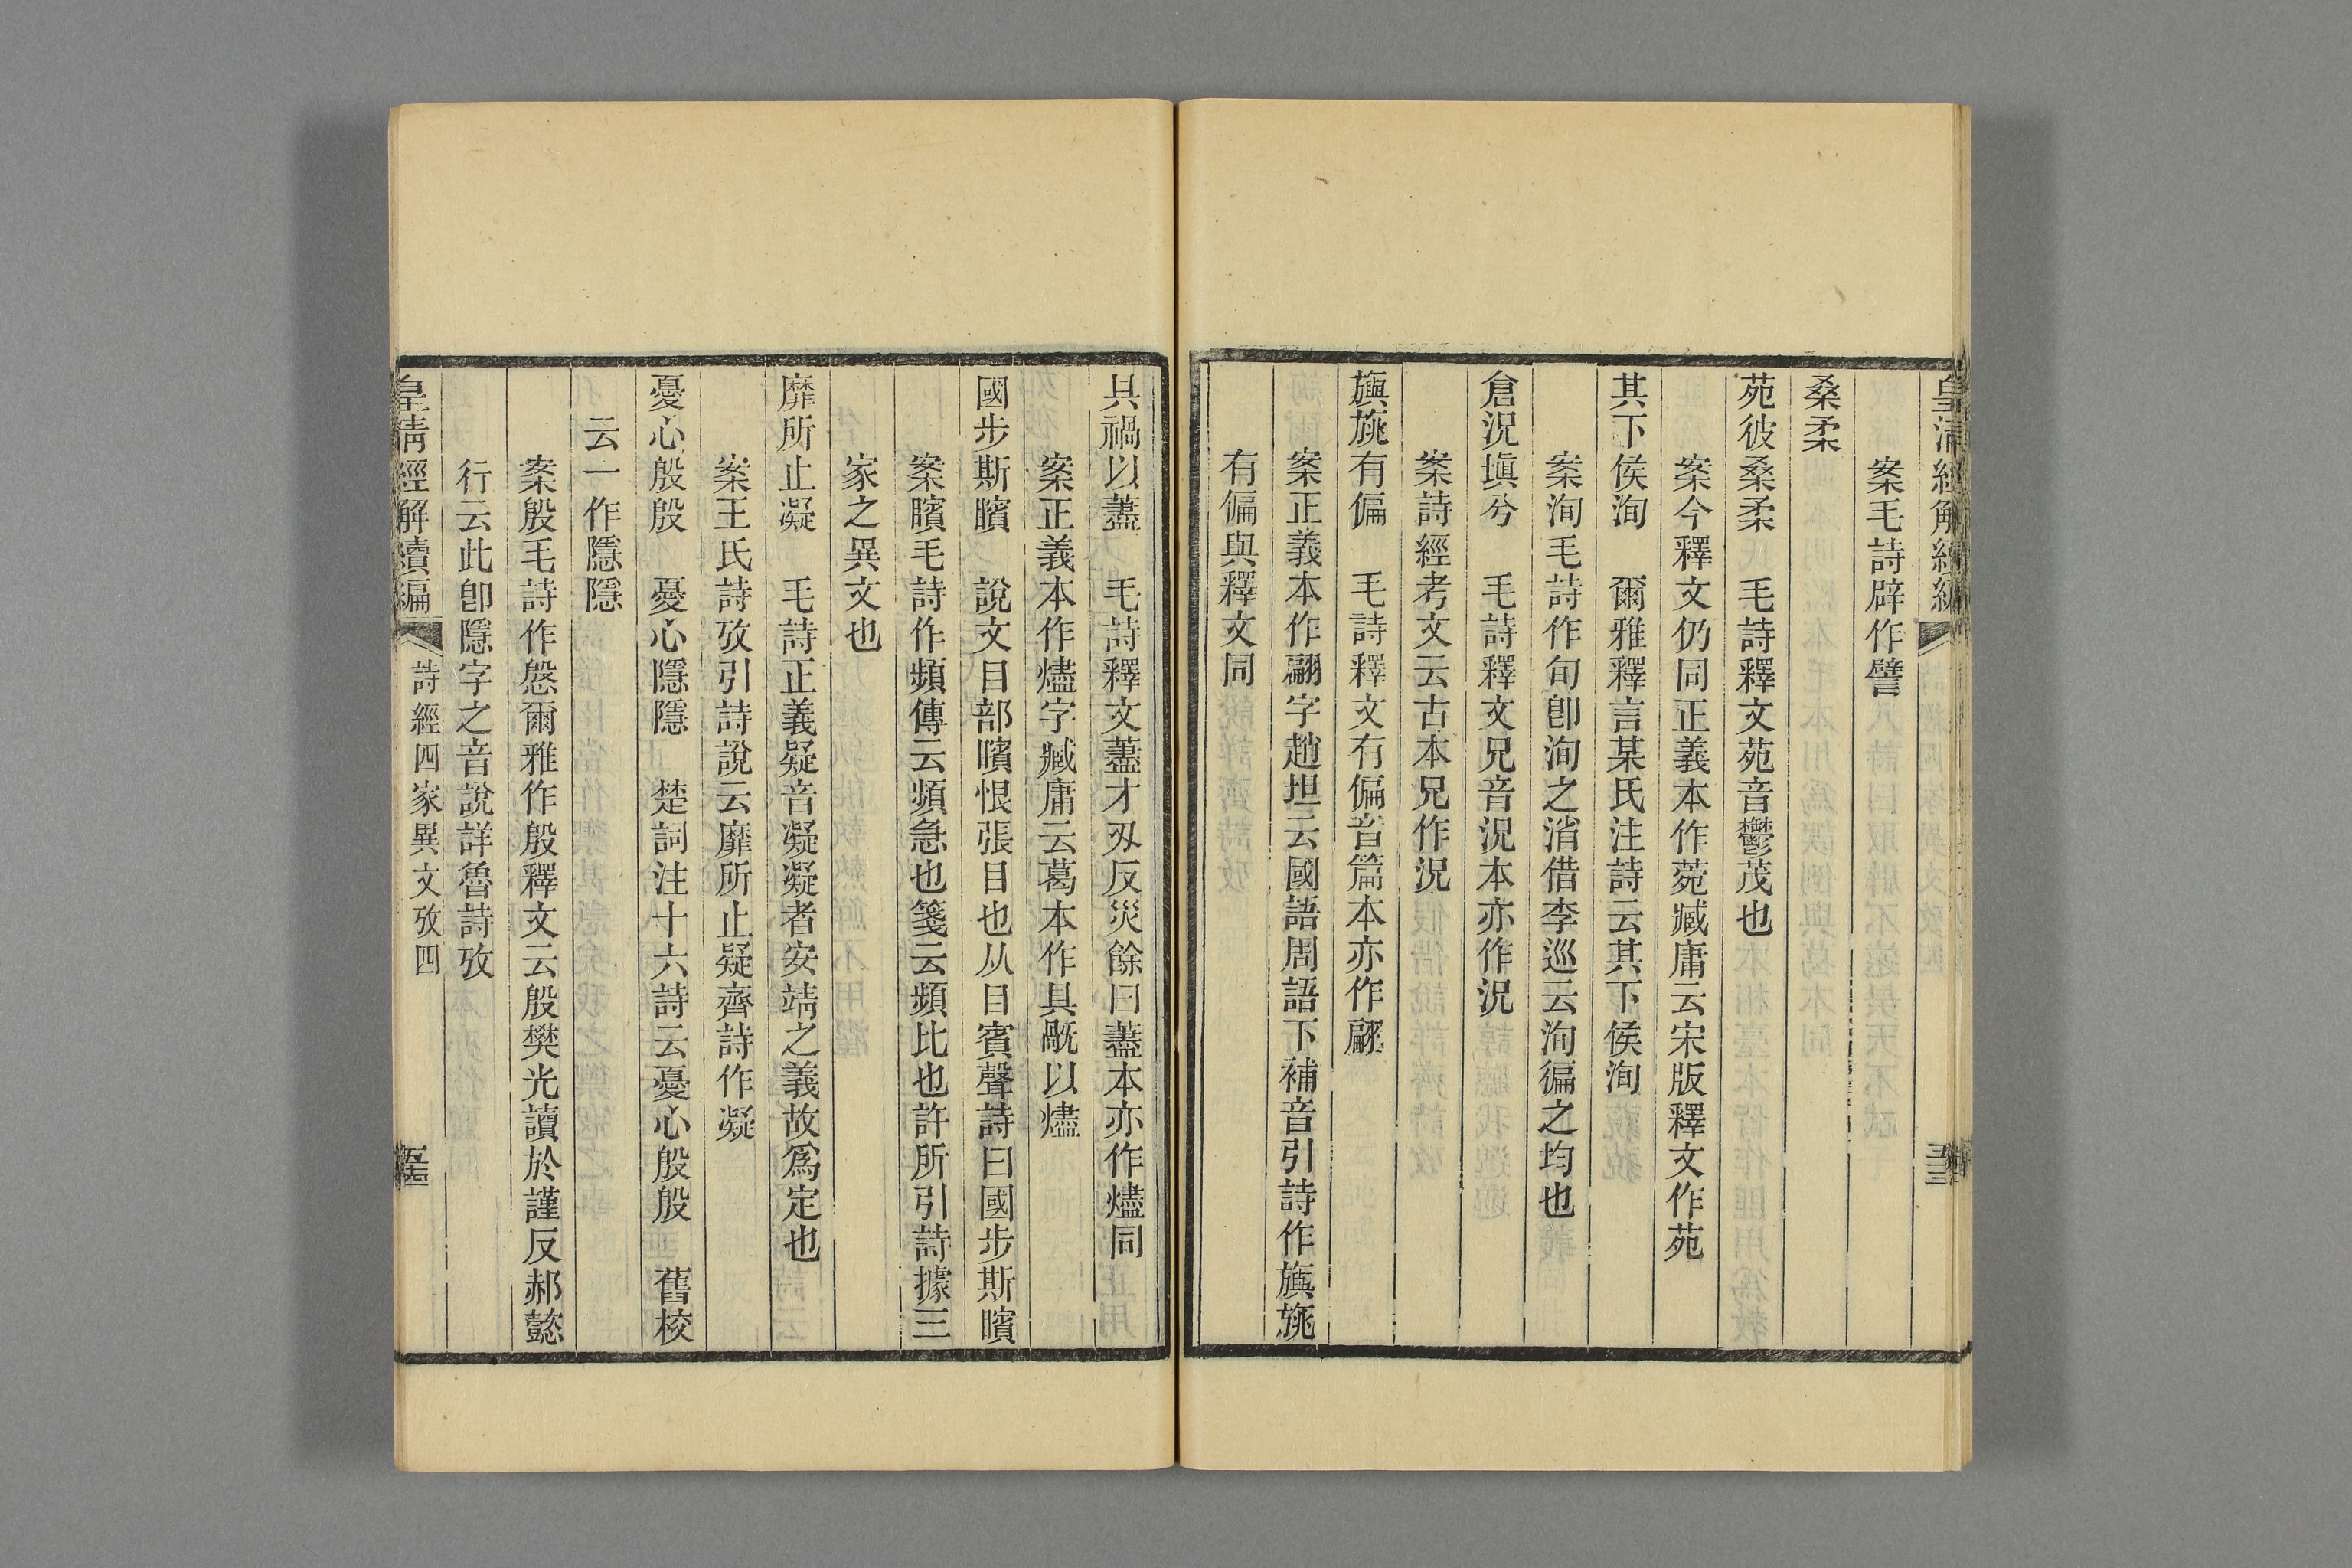 皇清經解續編
案毛詩辟作譬
桑柔
苑彼桑柔　毛詩釋文苑音鬱茂也
案今釋文仍同正義本作菀臧庸云宋版釋文作苑
其下侯洵　爾雅釋言某氏注詩云其下侯洵
案洵毛詩作旬卽洵之渻借李巡云洵徧之均也
倉況塡兮　毛詩釋文兄音況本亦作況
案詩經考文云古本兄作況
旟旐有偏　毛詩釋文有偏音篇本亦作翩
案正義本作翩字趙坦云國語周語下補音引詩作旟旐
有偏與釋文同
具禍以藎　毛詩釋文藎才刃反災餘曰藎本亦作燼同
案正義本作燼字臧庸云葛本作具旤以燼
國步斯矉　說文目部矉恨張目也从目賓聲詩曰國步斯矉
案矉毛詩作頻傳云頻急也箋云頻比也許所引詩據三
家之異文也
靡所止凝　毛詩正義疑音凝凝者安靖之義故爲定也
案王氏詩攷引詩說云靡所止疑齊詩作凝
憂心殷殷　憂心隱隱　楚詞注十六詩云憂心殷殷　舊校
云一作隱隱
案殷毛詩作慇爾雅作殷釋文云殷樊光讀於謹反郝懿
行云此卽隱字之音說詳魯詩攷
皇清經解續編　詩經四家異文攷四